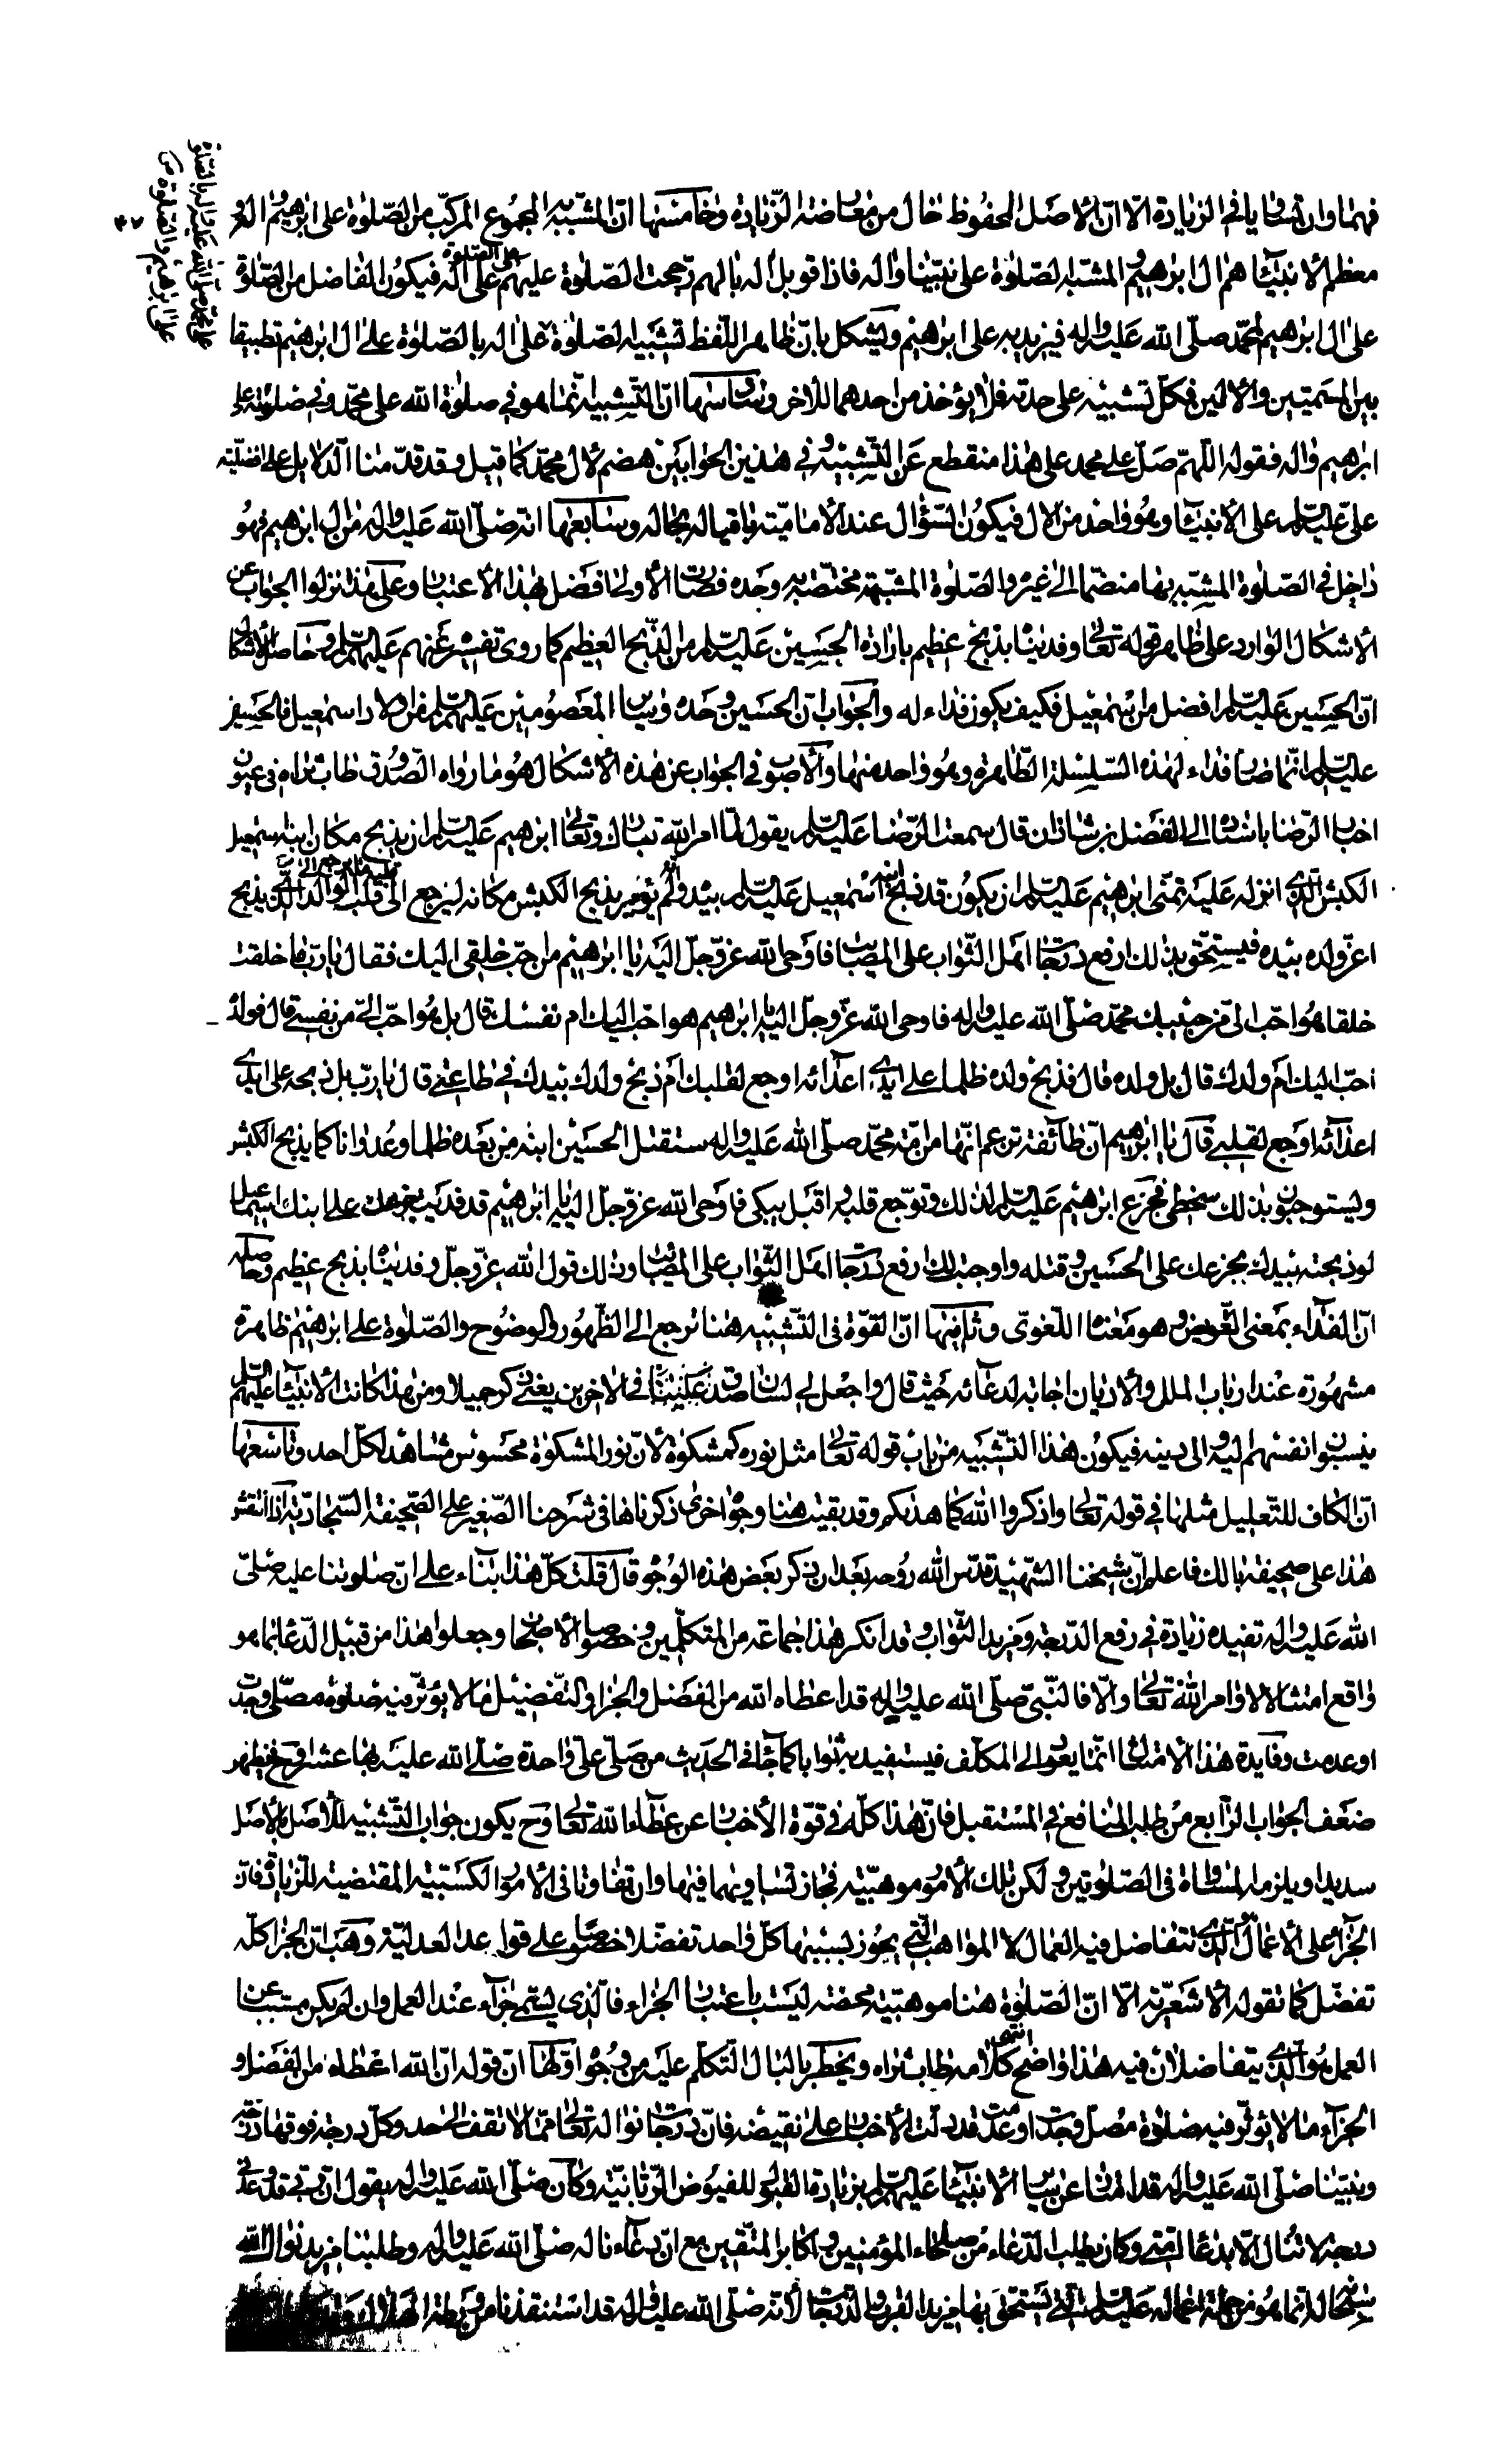 فهما وان تساويا في الزيادة الا ان الاصل المحفوظ خال من معارضة الزيادة وخامسها ان المشبه به المجموع المركب من الصلوة على ابراهيم واله و
معظم الانبياء هم ال ابراهيم والمشبه الصلوة على نبينا واله فاذا قوبل اله بالهم رجحت الصلوة عليهم على الصلوة على اله فيكون الفاضل من الصلوة
على ال ابراهيم لمحمد صلى الله عليه واله فيزيد به على ابراهيم ويشكل بان ظاهر اللفظ تشبيه الصلوة على اله بالصلوة على ال ابراهيم تطبيقا
بين المسميين والالين فكل تشبيه على حدته فلا يؤخذ من احدهما للاخر وسادسها ان التشبيه انما هو في صلوة الله على محمد وفي صلوته على
ابراهيم واله فقوله اللهم صل على محمد على هذا منقطع عن التشبيه وفي هذين الجوابين هضم لال محمد كما قيل وقد قدمنا الدلايل على افضلية
على عليه السلم على الانبياء وهو واحد من الال فيكون السؤال عند الامامية باقيا له بحاله وسابعها انه صلى الله عليه واله من ال ابراهيم فهو
داخل في الصلوة المشبه بها منضما الى غيره والصلوة المشبهة مختصة به وحده فصارت الاولى افضل بهذا الاعتبار وعلى هذا نزلوا الجواب عن
الاشكال الوارد على ظاهر قوله تعالى وفديناه بذبح عظيم بارادة الحسين عليه السلم من الذبح العظيم كما روى تفسيره عنهم عليهم السلم وحاصل الاشكال
ان الحسين عليه السلم افضل من اسمعيل فكيف يكون فداء له والجواب ان الحسين وحده وساير المعصومين عليهم السلم من اولاد اسمعيل فالحسين
عليه السلم انما صار فداء لهذه السلسلة الطاهرة وهو واحد منها والاصوب في الجواب عن هذه الاشكال هو ما رواه الصدوق طاب ثراه في عيون
اخبار الرضا باسناده الى الفضل بن شاذان قال سمعت الرضا عليه السلم يقول لما امر الله تبارك وتعالى ابرهيم عليه السلم ان يذبح مكان ابنه اسمعيل
الكبش الذي انزله عليه تمنى ابرهيم عليه السلم ان يكون قد ذبح ابنه اسمعيل عليه السلم بيده وانه لم يؤمر بذبح الكبش مكانه ليرجع الى قلبه ما يرجع الى قلب الوالد الذي يذبح
اعز ولده بيده فيستحق بذلك ارفع درجات اهل الثواب على المصايب فاوحى الله عز وجل اليه يا ابراهيم من احب خلقي اليك فقال يا رب ما خلقت
خلقا هو احب الى من حبيبك محمد صلى الله عليه واله فاوحى الله عز وجل اليه يا ابرهيم هو احب اليك ام نفسك قال بل هو احب الى من نفسي قال فولده
احب اليك ام ولدك قال بل ولده قال فذبح ولده ظلما على ايدي اعدائه اوجع لقلبك ام ذبح ولدك بيدك في طاعتي قال يا رب بل ذبحه على ايدي
اعدائه اوجع لقلبي قال يا ابراهيم ان طائفة تزعم انها من امة محمد صلى الله عليه واله ستقتل الحسين ابنه من بعده ظلما وعدوانا كما يذبح الكبش
ويستوجبون بذلك سخطي فجزع ابرهيم عليه السلم لذلك وتوجع قلبه واقبل يبكي فاوحى الله عز وجل اليه يا ابرهيم قد فديت جزعك على ابنك اسماعيل
لو ذبحته بيدك بجزعك على الحسين وقتله واوجبت لك ارفع درجات اهل الثواب على المصايب وذلك قول الله عز وجل وفديناه بذبح عظيم وحاصله
ان الفداء بمعنى التعويض وهو معناه اللغوى وثامنها ان القوة في التشبيه هنا ترجع الى الظهور والوضوح والصلوة على ابرهيم ظاهرة
مشهورة عند ارباب الملل والاديان اجابة لدعائه حيث قال واجعل لي لسان صدق في الاخرين يعني ذكر جميلا ومن هذا كانت الانبياء عليهم السلم
ينسبون انفسهم اليه والى دينه فيكون هذا التشبيه من باب قوله تعالى مثل نوره كمشكوة لان نور المشكوة محسوس مشاهد لكل احد وتاسعها
ان الكاف للتعليل مثلها في قوله تعالى واذكروا الله كما هداكم وقد بقيت هنا وجوه اخرى ذكرناها في شرحنا الصغير على الصحيفة السجادية اذا انتقش
هذا على صحيفة بالك فاعلم ان شيخنا الشهيد قدس الله روحه بعد ان ذكر بعض هذه الوجوه قال قلت كل هذا بناء على ان صلوتنا عليه صلى
الله عليه واله تفيده زيادة في رفع الدرجة ومزيد الثواب وقد انكر هذا جماعة من المتكلمين وخصوصا الاصحاب وجعلوا هذا من قبيل الدعاء بما هو
واقع امتثالا لاوامر الله تعالى والا فالنبي صلى الله عليه واله قد اعطاه الله من الفضل والجزاء والتفضيل ما لا يؤثر فيه صلوة مصل وجدت
او عدمت وفايدة هذا الامتثال انما يعود الى المكلف فيستفيد به ثوابا كما جاء في الحديث من صلى على واحدة صلى الله عليه بها عشرا وح فيظهر
ضعف الجواب الرابع من طلب المنافع في المستقبل فان هذا كله في قوة الاخبار عن عطاء الله تعالى وح يكون جواب التشبيه للاصل بالاصل
سديدا ويلزمه المساواة في الصلوتين ولكن تلك الامور موهبية فجاز تساويهما فيها وان تفاوتا في الامور الكسبية المقتضية للزيادة فان
الجزاء على الاعمال هو الذي تتفاضل فيه العمال لا المواهب التي يجوز نسبتها كل واحد تفضلا خصوصا على قواعد العدلية وهب ان الجزاء كله
تفضل كما تقوله الاشعرية الا ان الصلوة هنا موهبية محضة ليست باعتبار الجزاء فالذي يسمى جزاء عند العمل وان لم يكن مسببا عن
العمل هو الذي يتفاضلان فيه هذا واضح انتهى كلامه طاب ثراه ويخطر بالبال التكلم عليه من وجوه اولها ان قوله ان الله اعطاه من الفضل و
الجزاء ما لا يؤثر فيه صلوة مصل وجدت او عدمت قد دلت الاخبار على نقيضه فان درجات نواله تعالى مما لا تقف الى حد وكل درجة فوقها درجة
ونبينا صلى الله عليه واله قد امتاز عن ساير الانبياء عليهم السلم بزيادة القبول للفيوض الربانية وكان صلى الله عليه واله يقول ان ربي قد وعدني
درجة لا تنال الا بدعاء امتي وكان يطلب الدعاء من صلحاء المؤمنين واكابر المتقين مع ان دعاءنا له صلى الله عليه واله وطلبنا مزيد نوال الله
سبحانه له انما هو من جملة اعماله عليه السلم التي يستحق بها مزيد القرب والدرجات لانه صلى الله عليه واله قد استنقذنا من